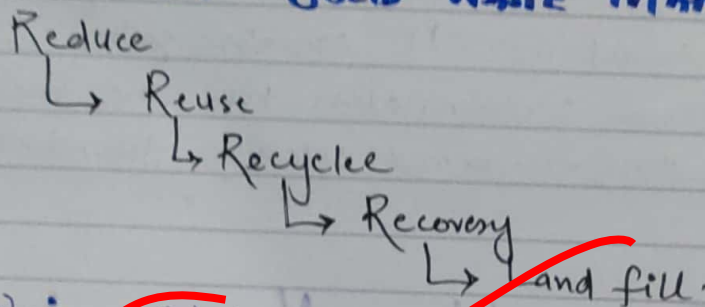 Reduce
↳ Reuse
↳ Recyclee
↳ Recovery
↳ Land fill.